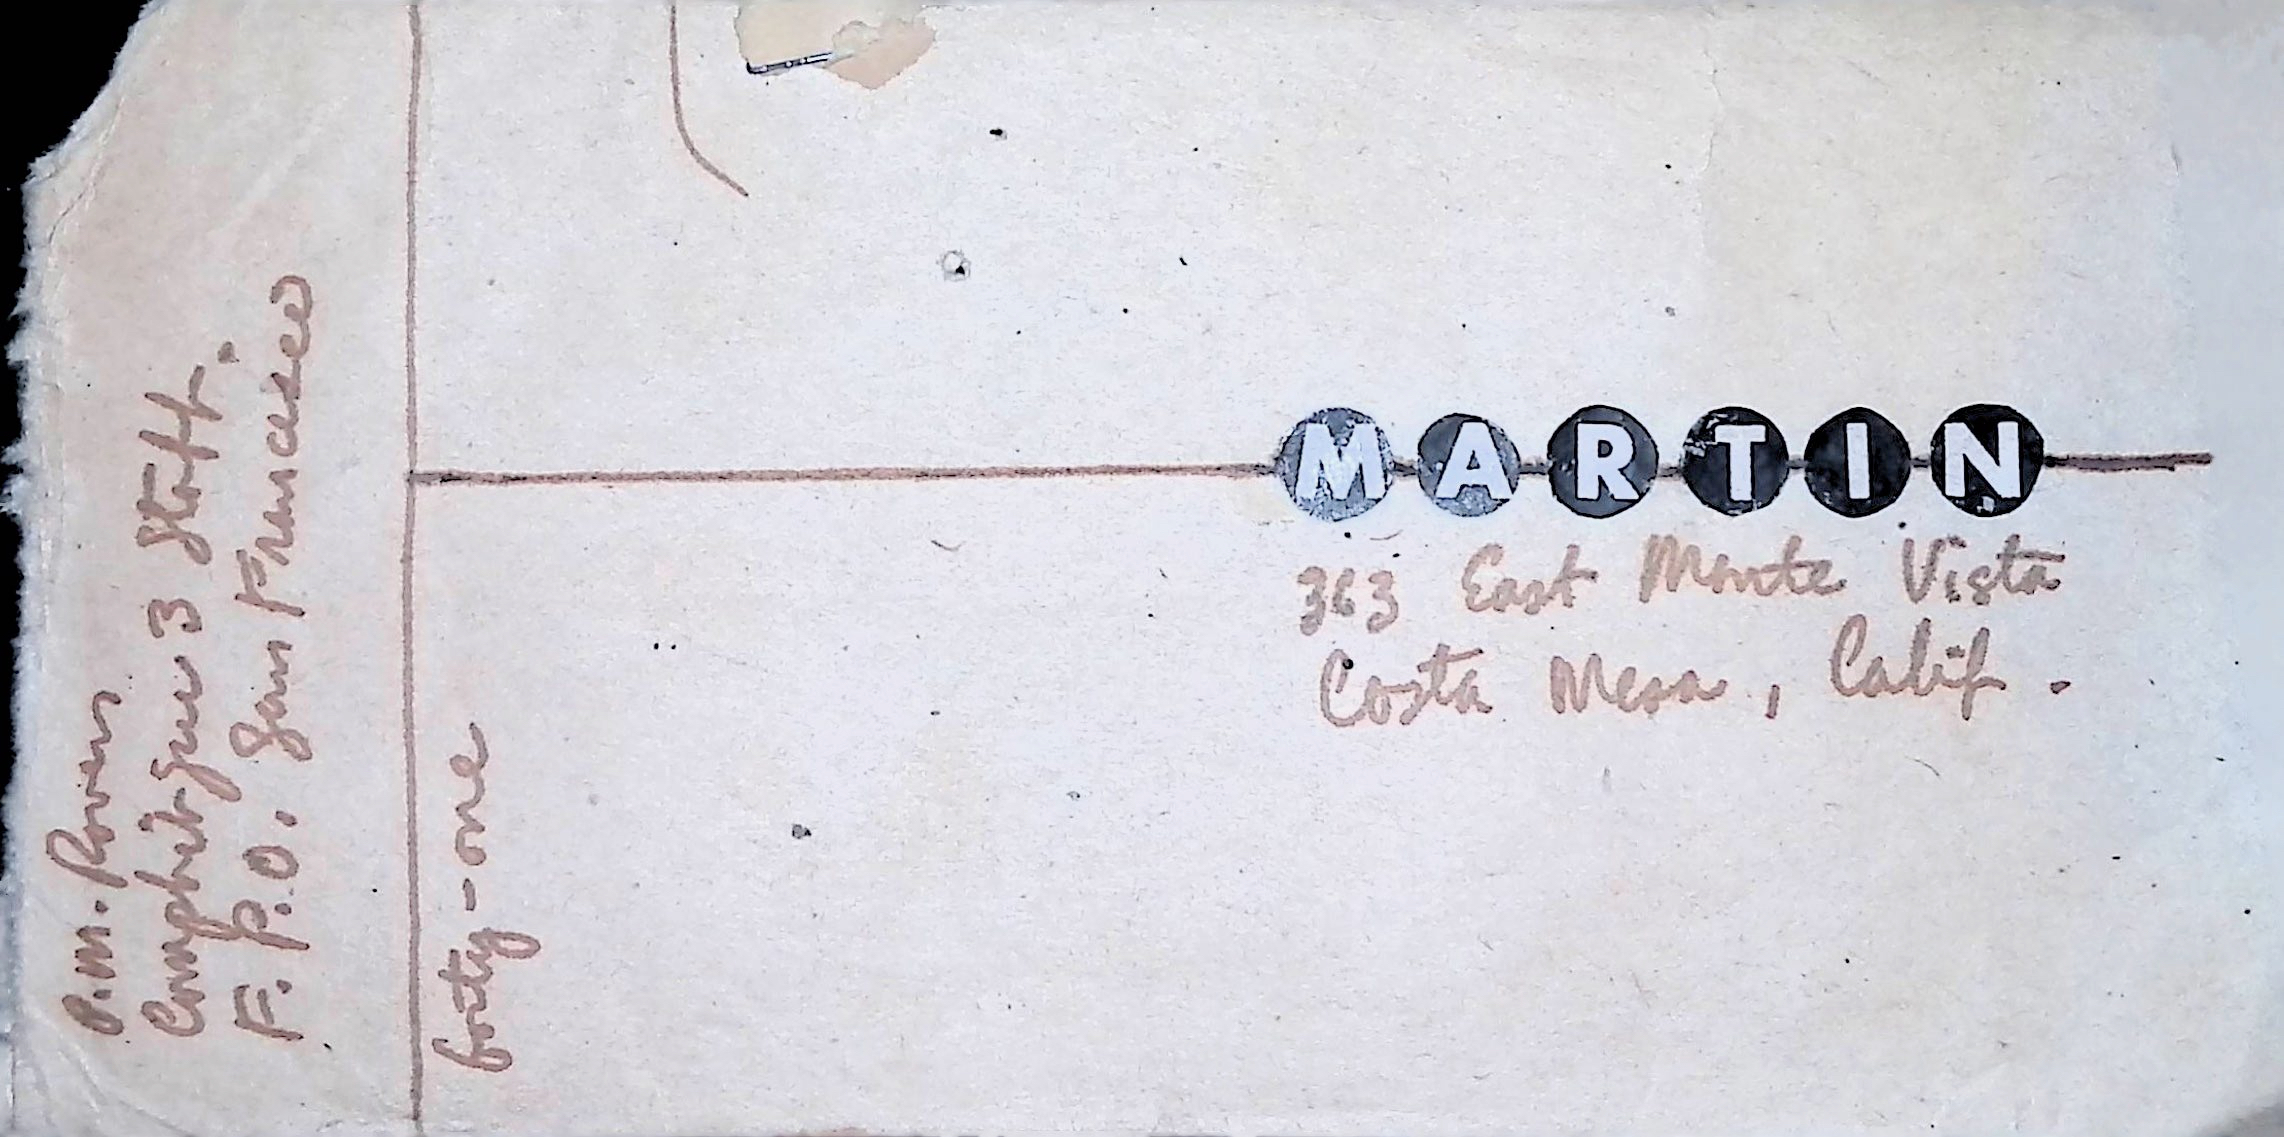 P.M. Rovers
Comphibgru 3 Staff.
F.P.O. San Francisco
forty-one
MARTIN
363 East Monte Vista
Costa Mesa, Calif.